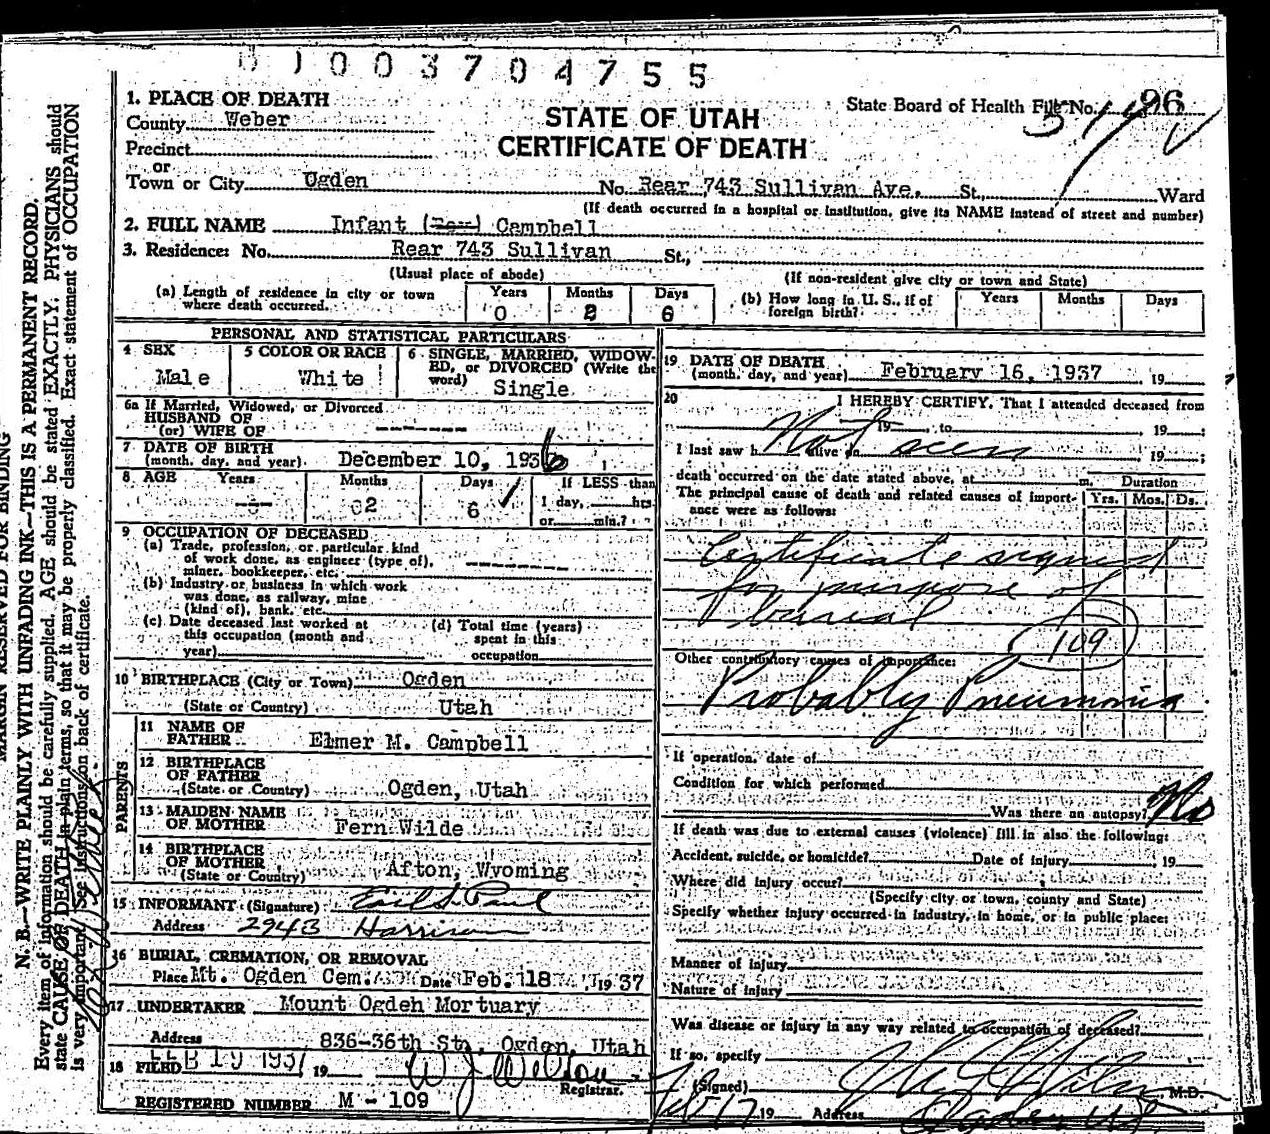 003704755
1. PLACE OF DEATH
County Weber
Precinct
or
Town or City Ogden
STATE OF UTAH
CERTIFICATE OF DEATH
State Board of Health File No. 96
No. Rear 743 Sullivan Ave. St., Ward
(If death occurred in a hospital or institution, give its NAME instead of street and number)
2. FULL NAME Infant Campbell
3. Residence: No. Rear 743 Sullivan St.,
(Usual place of abode) (If non-resident give city or town and State)
(a) Length of residence in city or town where death occurred. Years 0 Months 2 Days 6
(b) How long in U. S., if of foreign birth? Years Months Days
PERSONAL AND STATISTICAL PARTICULARS
4 SEX Male
5 COLOR OR RACE White
6 SINGLE, MARRIED, WIDOWED, or DIVORCED (Write the word) Single
6a If Married, Widowed, or Divorced
HUSBAND OF
(or) WIFE OF
7 DATE OF BIRTH
(month, day, and year) December 10, 1936
8 AGE Years Months 02 Days 6 If LESS than
1 day, hrs
or min.?
9 OCCUPATION OF DECEASED
(a) Trade, profession, or particular kind
of work done, as engineer (type of),
miner, bookkeeper, etc.
(b) Industry or business in which work
was done, as railway, mine
(kind of), bank, etc.
(c) Date deceased last worked at
this occupation (month and
year)
(d) Total time (years)
spent in this
occupation
10 BIRTHPLACE (City or Town) Ogden
(State or Country) Utah
PARENTS
11 NAME OF
FATHER Elmer M. Campbell
12 BIRTHPLACE
OF FATHER
(State or Country) Ogden, Utah
13 MAIDEN NAME
OF MOTHER Fern Wilde
14 BIRTHPLACE
OF MOTHER
(State or Country) Afton, Wyoming
15 INFORMANT (Signature) Earl S. Paul
Address 2943 Harrison
16 BURIAL, CREMATION, OR REMOVAL
Place Mt. Ogden Cem. Date Feb. 18 1937
17 UNDERTAKER Mount Ogden Mortuary
Address 836-36th St., Ogden, Utah
18 FILED FEB 19 1937 19
Registrar.
REGISTERED NUMBER M - 109
19 DATE OF DEATH
(month, day, and year) February 16, 1937 19
20 I HEREBY CERTIFY, That I attended deceased from
19 , to 19 ;
I last saw h alive on 19 ;
Not seen
death occurred on the date stated above, at m. Duration
The principal cause of death and related causes of importance were as follows: Yrs. Mos. Ds.
Certificate signed
for purpose of
burial
109
Other contributory causes of importance:
Probably Pneumonia
If operation, date of
Condition for which performed
Was there an autopsy? No
If death was due to external causes (violence) fill in also the following:
Accident, suicide, or homicide? Date of injury 19
Where did injury occur?
(Specify city or town, county and State)
Specify whether injury occurred in industry, in home, or in public place:
Manner of injury
Nature of injury
Was disease or injury in any way related to occupation of deceased?
If so, specify
(Signed) M.D.
19 Address Ogden Ut.
MARGIN RESERVED FOR BINDING
N. B.—WRITE PLAINLY WITH UNFADING INK—THIS IS A PERMANENT RECORD.
Every item of information should be carefully supplied. AGE should be stated EXACTLY. PHYSICIANS should
state CAUSE OF DEATH in plain terms, so that it may be properly classified. Exact statement of OCCUPATION
is very important. See instructions on back of certificate.